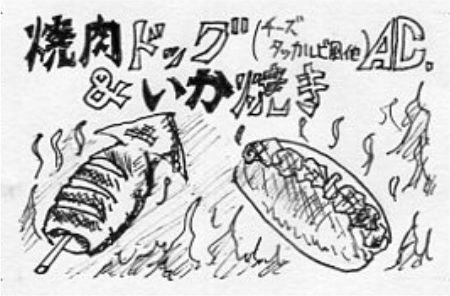 焼肉ドッグ(チーズタッカルビ風他)AD.
&いか焼き